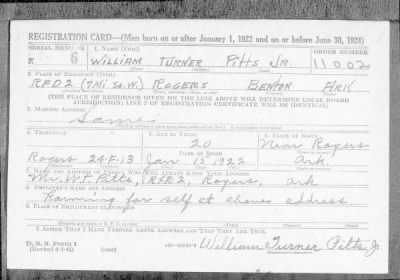 REGISTRATION CARD—(Men born on or after January 1, 1922 and on or before June 30, 1924)
SERIAL NUMBER 1. NAME (Print) ORDER NUMBER
N 6 WILLIAM TURNER PITTS JR. 11002
(First) (Middle) (Last)
2. PLACE OF RESIDENCE (Print)
RFD2 (7 Mi SO.W.) ROGERS BENTON ARK
[THE PLACE OF RESIDENCE GIVEN ON THE LINE ABOVE WILL DETERMINE LOCAL BOARD
JURISDICTION; LINE 2 OF REGISTRATION CERTIFICATE WILL BE IDENTICAL]
3. MAILING ADDRESS
Same
4. TELEPHONE 5. AGE IN YEARS 6. PLACE OF BIRTH
20 Near Rogers
DATE OF BIRTH
Rogers 24-F-13 Jan 15 1922 Ark
7. NAME AND ADDRESS OF PERSON WHO WILL ALWAYS KNOW YOUR ADDRESS
Mr. W.T. Pitts, RFD2, Rogers, Ark
8. EMPLOYER'S NAME AND ADDRESS
Farming for self at above address
9. PLACE OF EMPLOYMENT OR BUSINESS
I AFFIRM THAT I HAVE VERIFIED ABOVE ANSWERS AND THAT THEY ARE TRUE.
D. S. S. Form 1
William Turner Pitts Jr